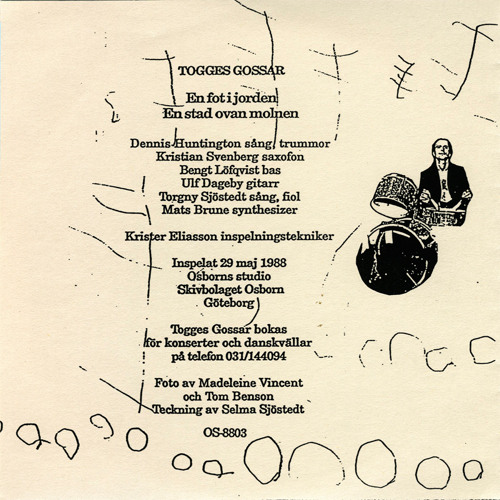 TOGGES GOSSAR
En fot i jorden
En stad ovan molnen
Dennis Huntington sång, trummor
Kristian Svenberg saxofon
Bengt Löfqvist bas
Ulf Dageby gitarr
Torgny Sjöstedt sång, fiol
Mats Brune synthesizer
Krister Eliasson inspelningstekniker
Inspelat 29 maj 1988
Osborns studio
Skivbolaget Osborn
Göteborg
Togges Gossar bokas
för konserter och danskvällar
på telefon 031/144094
Foto av Madeleine Vincent
och Tom Benson
Teckning av Selma Sjöstedt
OS-8803